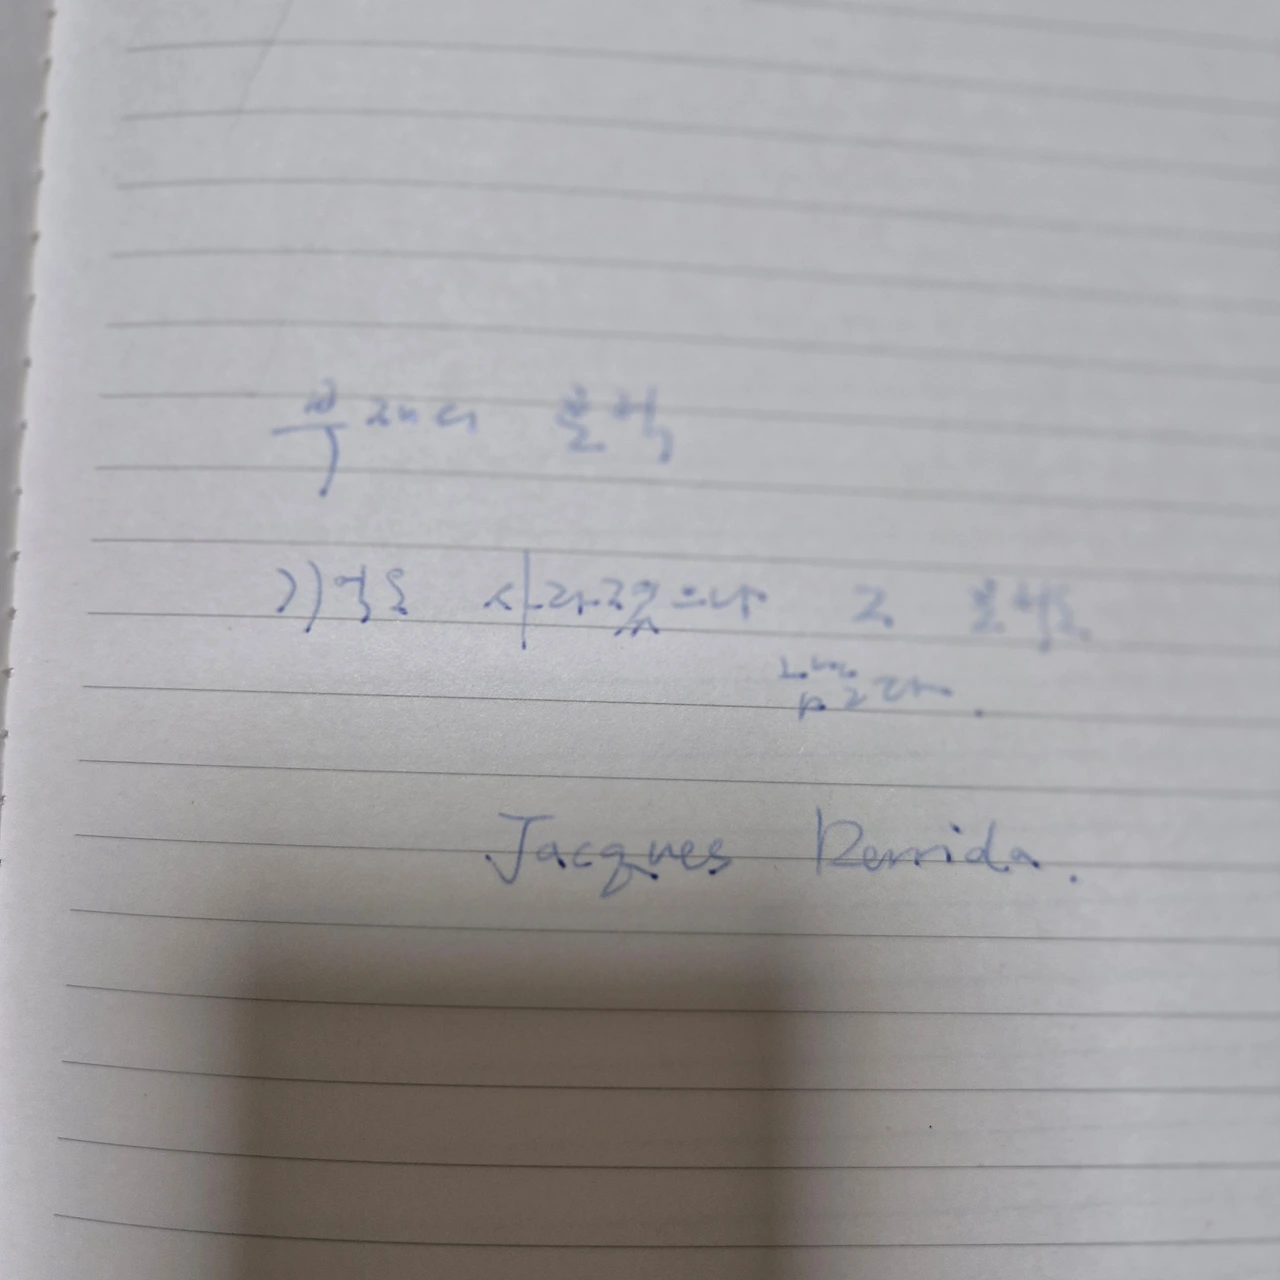 부재의 흔적
기억은 사라지고 있으나 그 흔적은
남는다.
Jacques Derrida.